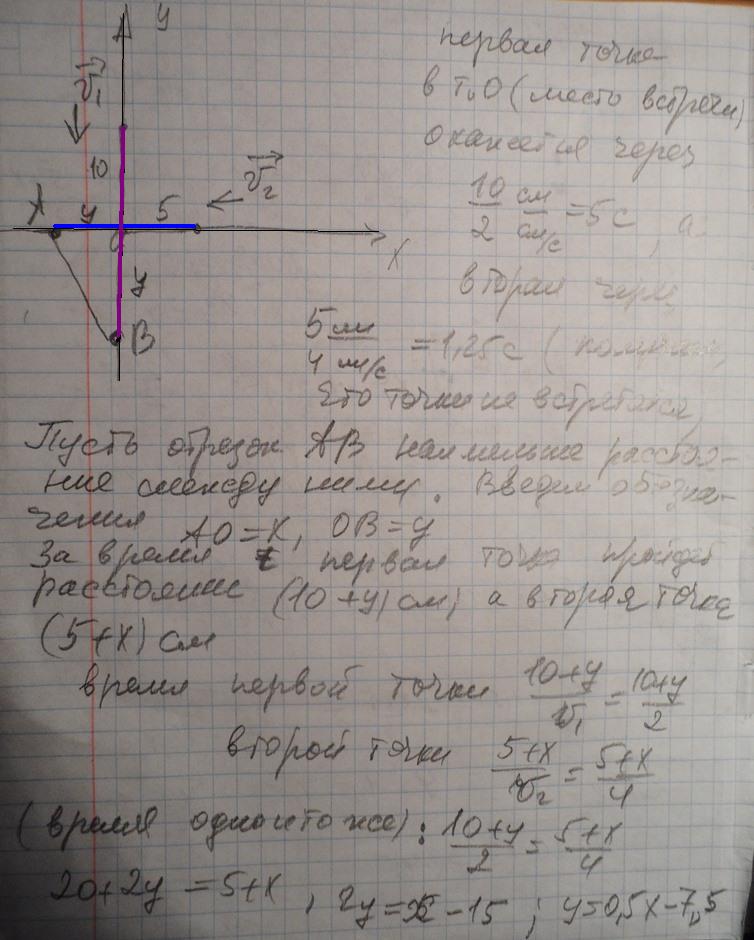 y
v₁
10
A
y
5
v₂
O
X
y
B
первая точка
в т. О (место встречи)
окажется через
10/2 см/см/с = 5с, а
вторая через
5 см/4 см/с = 1,25с (
что точки не встретятся)
Пусть отрезок АВ наименьшее расстоя-
ние между ними. Введем обозна-
чения АО=Х, ОВ=У
За время t первая точка пройдет
расстояние (10+у) см, а вторая точка
(5+х) см
время первой точки 10+у/v₁ = 10+у/2
второй точки 5+х/v₂ = 5+х/4
(время одно и то же): 10+у/2 = 5+х/4
20+2у = 5+х, 2у=х-15; у=0,5х-7,5